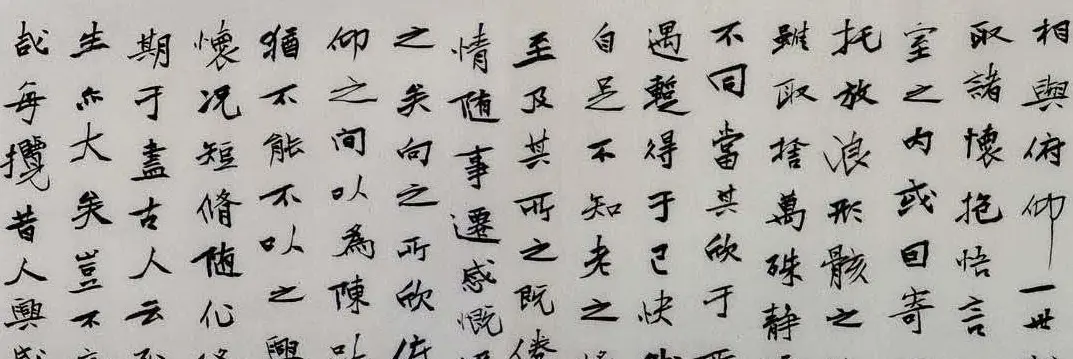 相與俯仰一世
取諸懷抱悟言
室之內或因寄
托放浪形骸之
雖取捨萬殊静
不同當其欣于
遇暫得于己快
自足不知老之
至及其所之既倦
情随事遷感慨
之矣向之所欣俯
仰之間以為陳
猶不能不以之興
懷况短脩随化
期于盡古人云
生亦大矣豈不
哉每攬昔人興